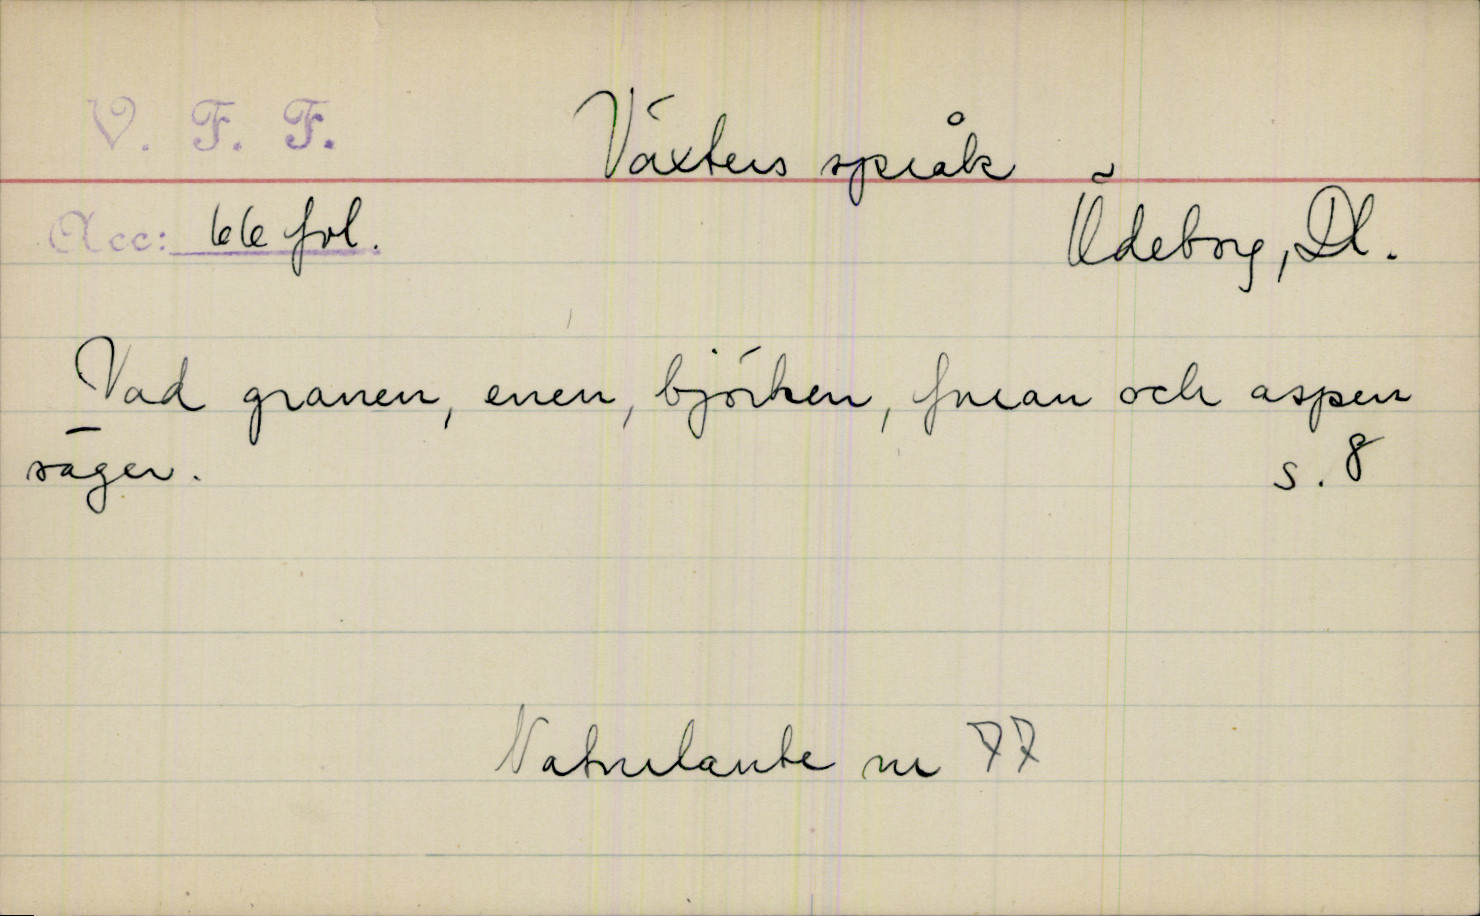 V. F. F.
Växters språk
Acc: 66 fol.
Ödeborg, Dl.
Vad granen, enen, björken, furan och aspen
säger.
s. 8
Naturlaute nr 77